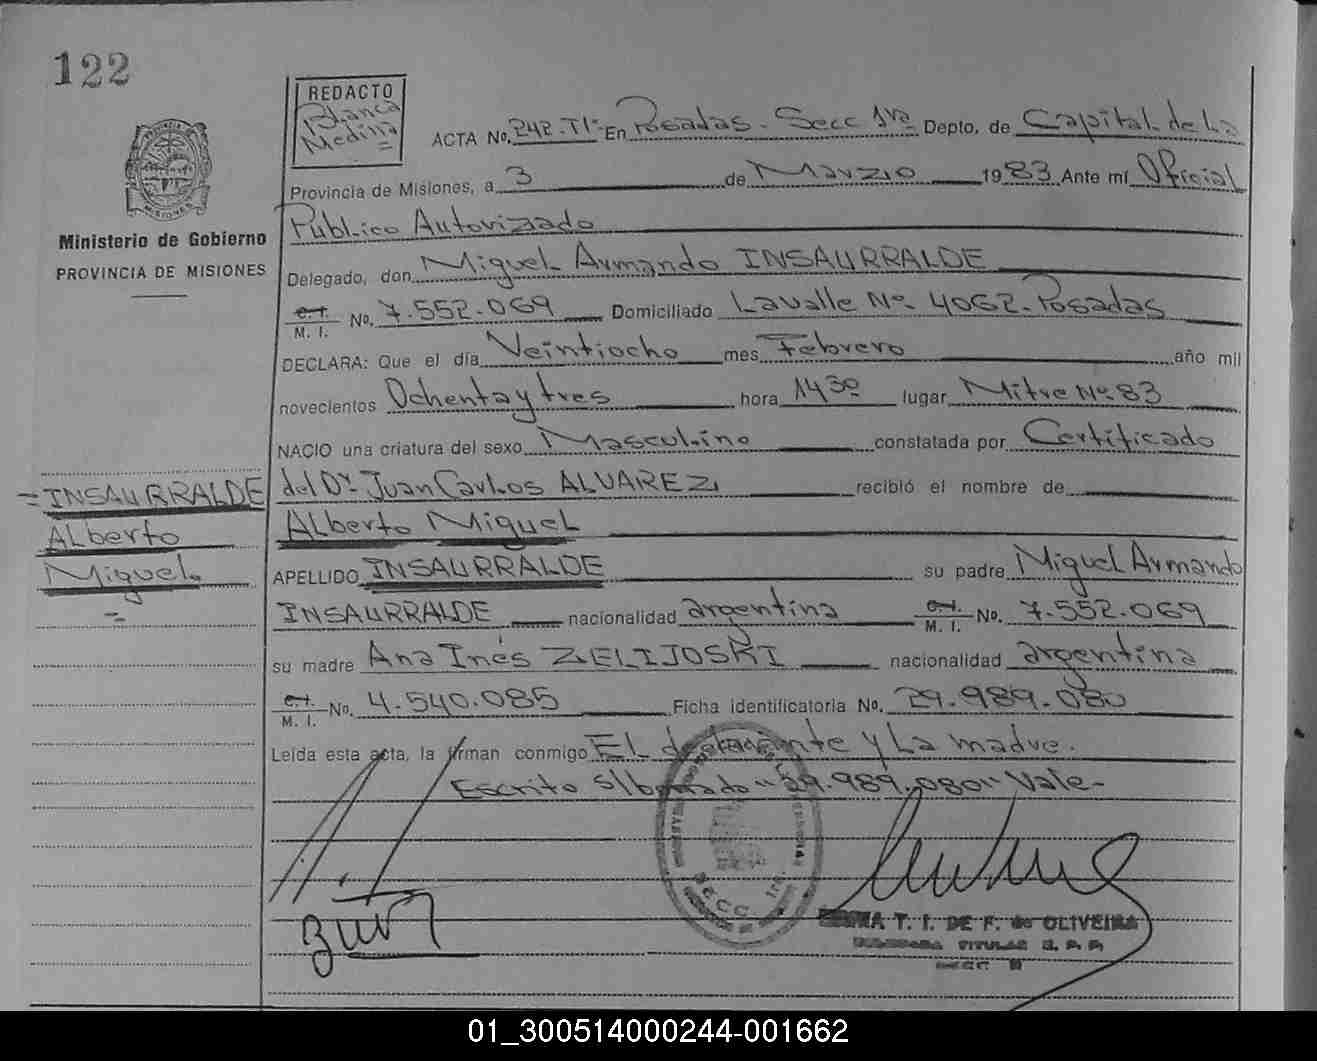 122
REDACTO
Blanca
Medina
ACTA No. 242-TI- En Posadas. Secc 1ra Depto. de Capital de La
PROVINCIA DE
MISIONES
Provincia de Misiones, a 3 de Marzo 1983 Ante mí Oficial
Ministerio de Gobierno
Público Autorizado
PROVINCIA DE MISIONES
Delegado, don Miguel Armando INSAURRALDE
C.I.
M. I. No. 7.552.069 Domiciliado Lavalle No 4062- Posadas
DECLARA: Que el día Veintiocho mes Febrero año mil
novecientos Ochenta y tres hora 14 30 lugar Mitre No 83
NACIO una criatura del sexo Masculino constatada por Certificado
=INSAURRALDE
del Dr. Juan Carlos ALVAREZ recibió el nombre de
Alberto
Alberto Miguel
Miguel.
APELLIDO INSAURRALDE su padre Miguel Armando
INSAURRALDE nacionalidad argentina C.I. M. I. No. 7.552.069
su madre Ana Inés ZELIJOSKI nacionalidad argentina
C.I.
M. I. No. 4.540.085 Ficha identificatoria No. 29.989.080
Leída esta acta, la firman conmigo El declarante y La madre.
Escrito s/borrado "29.989.080" Vale-
SECC 1ra.
T. I. DE F. de OLIVEIRA
TITULAR
SECC
01_300514000244-001662